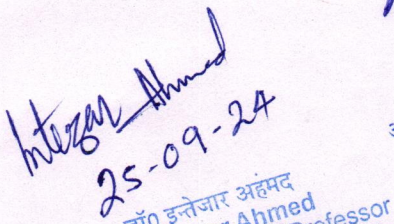 Intezar Ahmed
25-09-24
डॉ० इन्तेजार अहमद
Ahmed
Professor